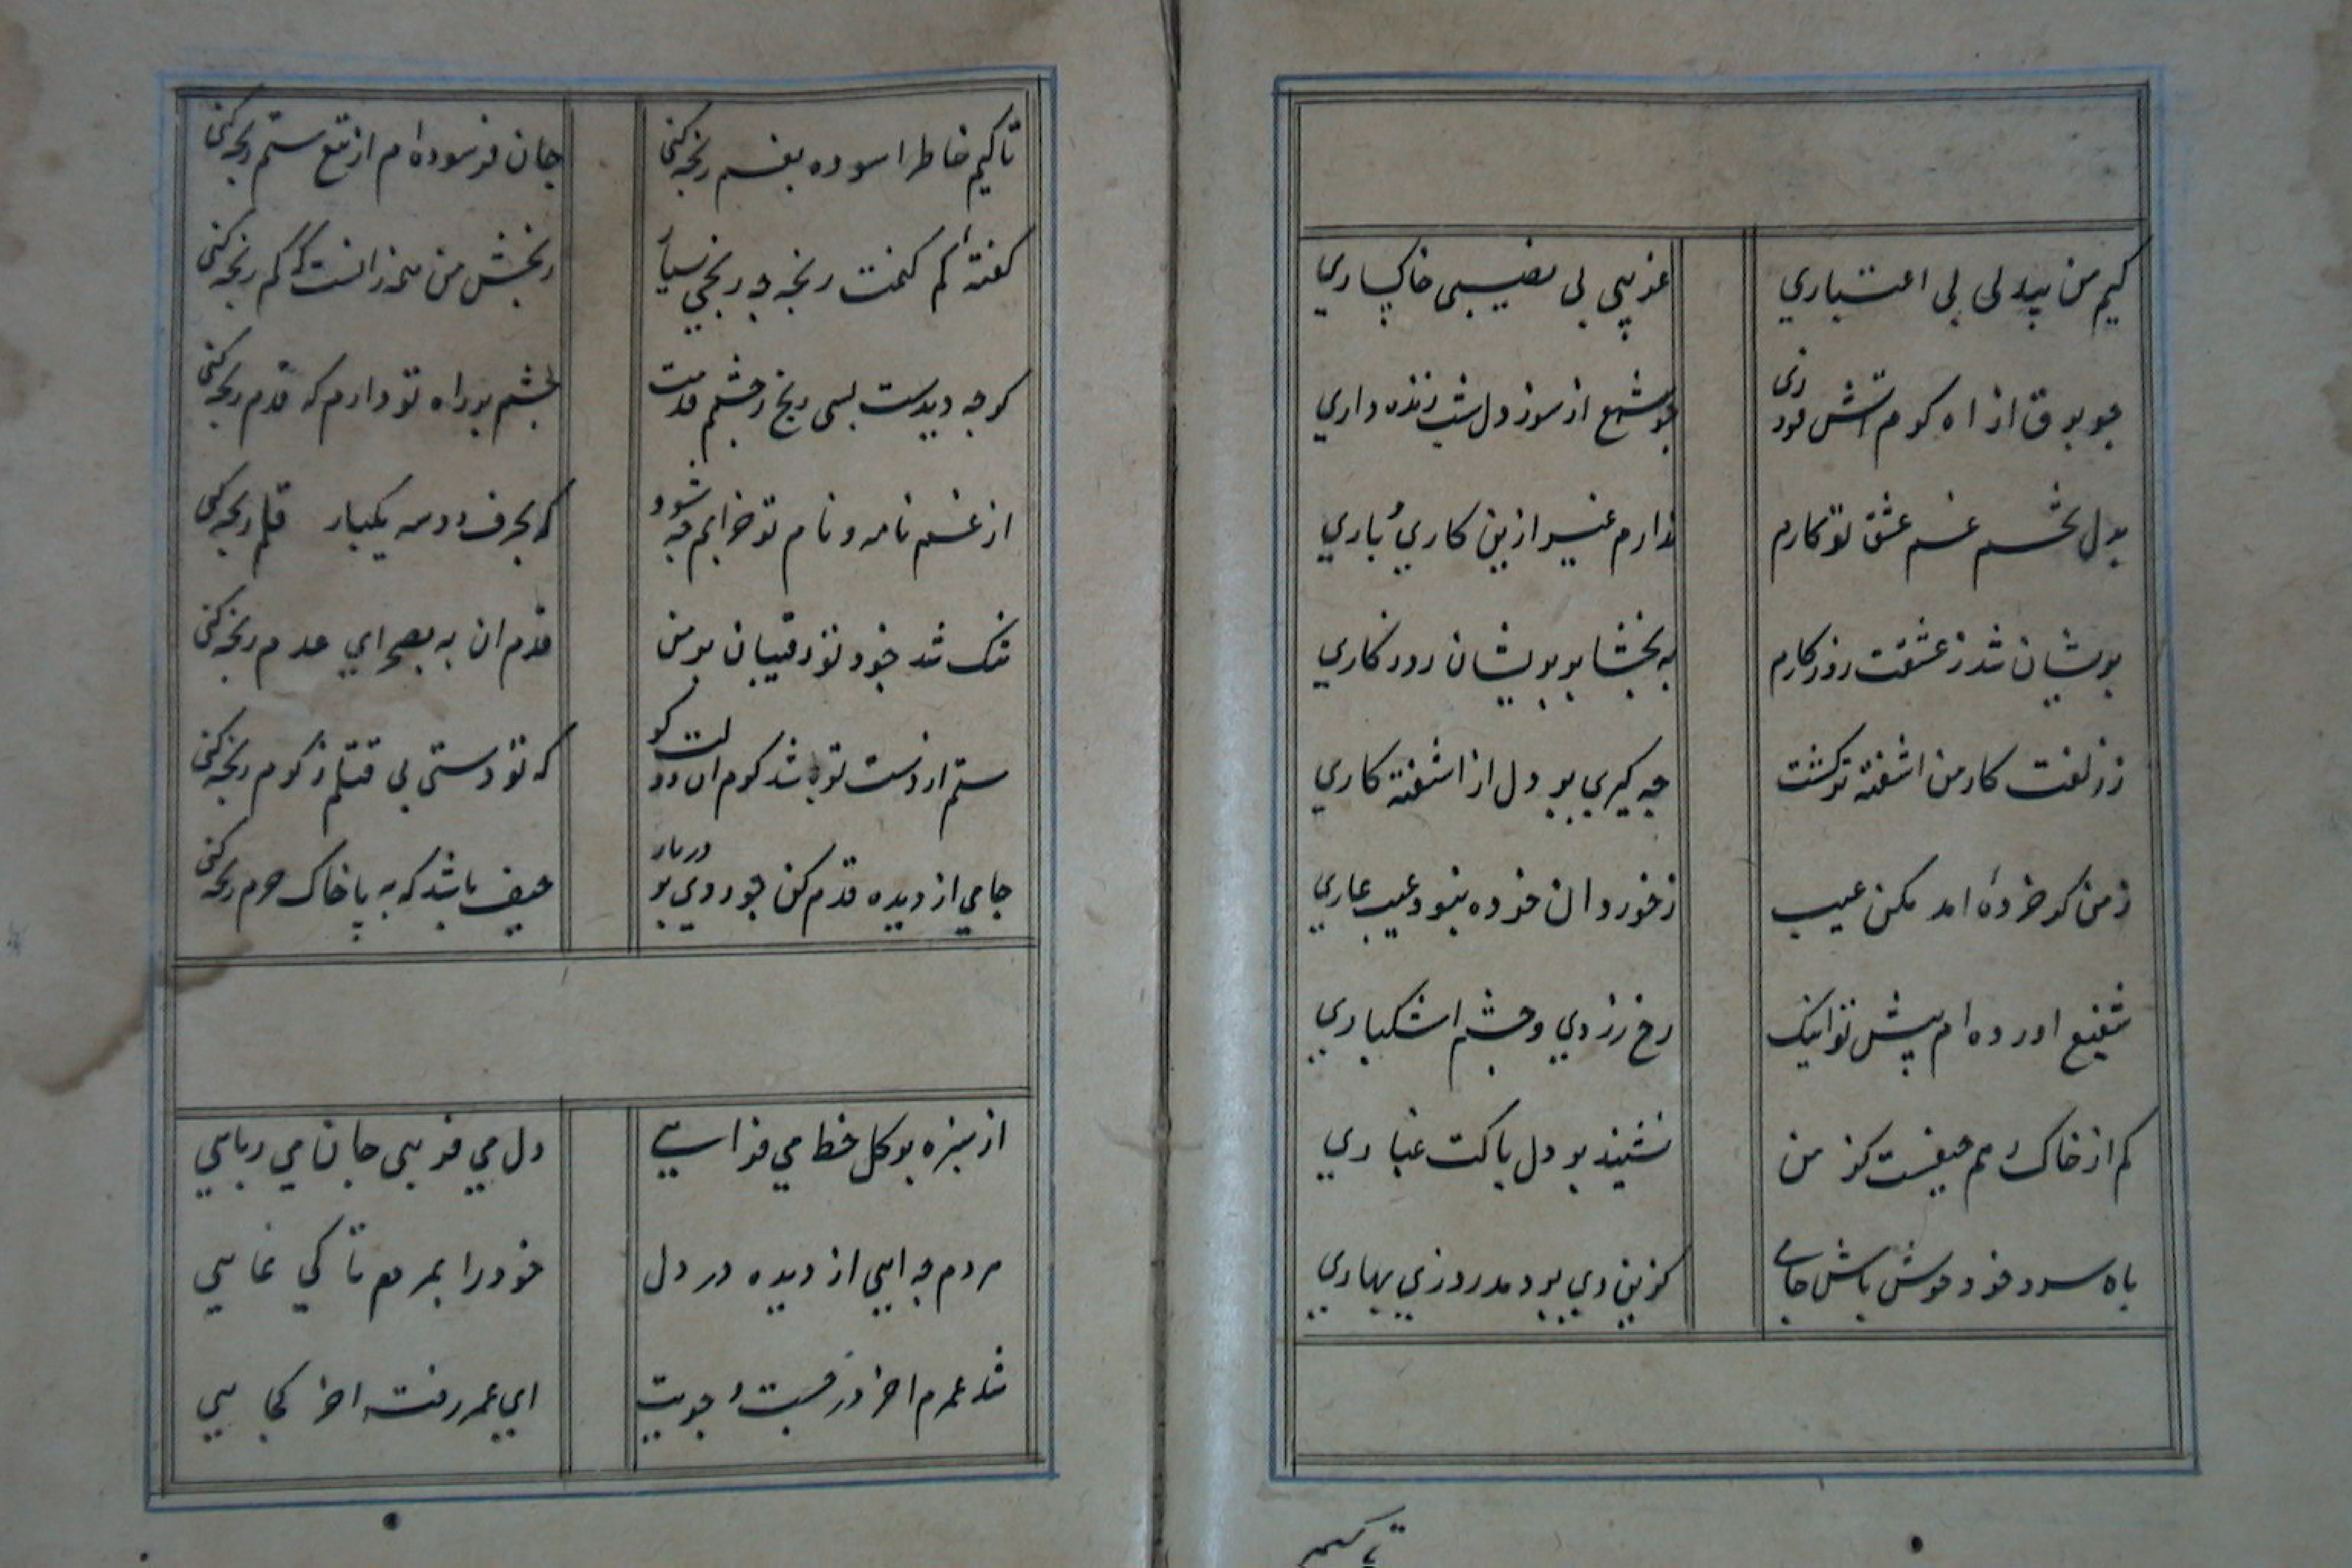 کیم من بیدلی بی اعتباری
غریبی بی نصیبی خاکساری
جو برق از اه کرم اتش فروزی
جو شمع از سوز دل شب زنده داری
بدل تخم غم عشق تو کارم
ندارم غیر ازین کاری و باری
پریشان شد ز عشقت روزکارم
به بخشا بر پریشان روزکاری
ز زلفت کار من اشفته تر کشت
جه کیری بر دل از اشفته کاری
ز من کر خرده امد مکن عیب
ز خوردان خرده نبود عیب عاری
شفیع اورده ام پیش تو اینک
رخ زردی و جشم اشکباری
کم از خاک رهم حیفست کز من
نشیند بر دل پاکت غباری
باه سرد خود خوش باش جامی
کزین دی بردمد روزی بهاری
تا کیم
تا کیم خاطر اسوده بغم رنجه کنی
جان فرسوده ام از تیغ ستم رنجه کنی
کفته ام کم کنمت رنجه جه رنجی بسیار
رنجش من همه زانست که کم رنجه کنی
کرجه دیدست بسی رنج ز جشم قدمت
جشم بر راه تو دارم که قدم رنجه کنی
از غم نامه و نام تو خرابم جه شود
که بحرف دو سه یکبار قلم رنجه کنی
تنک شد خود تو رقیبان بر من
قدم ان به بصحرای عدم رنجه کنی
ستم از دست تو باشد کرم ان دولت کو
که تو دستی بی قتلم ز کرم رنجه کنی
جامی از دیده قدم کن جو روی بر در یار
حیف باشد که به پا خاک حرم رنجه کنی
از سبزه بر کل خط می فزایی
دل می فریبی جان می ربایی
مردم جه ایی از دیده در دل
خود را بمردم تا کی نمایی
شد عمرم اخر در جست و جویت
ای عمر رفته اخر کجایی